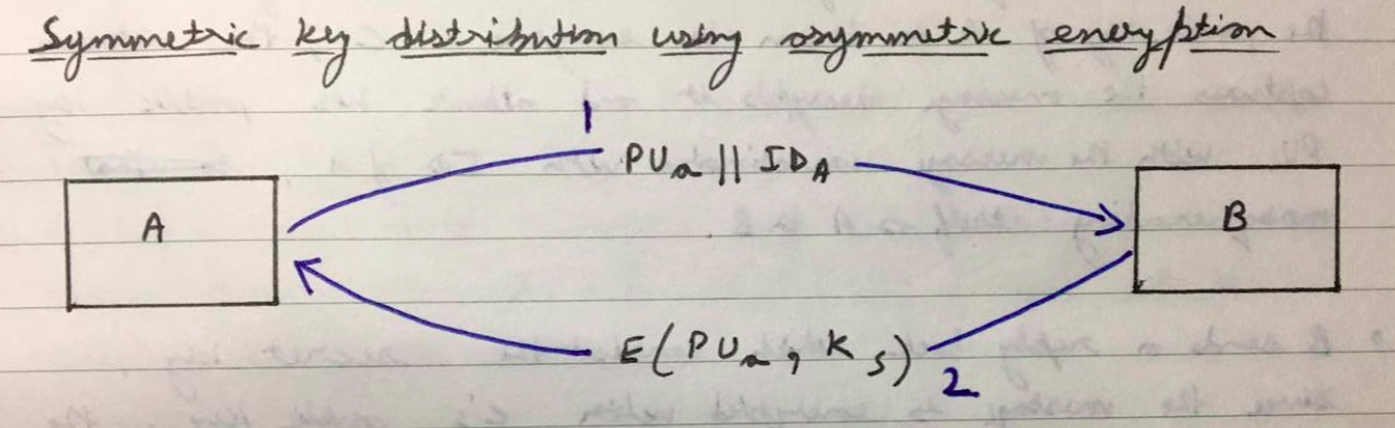 Symmetric key distribution using asymmetric encryption
1
PUa || IDA
A
B
E(PUa, Ks)
2